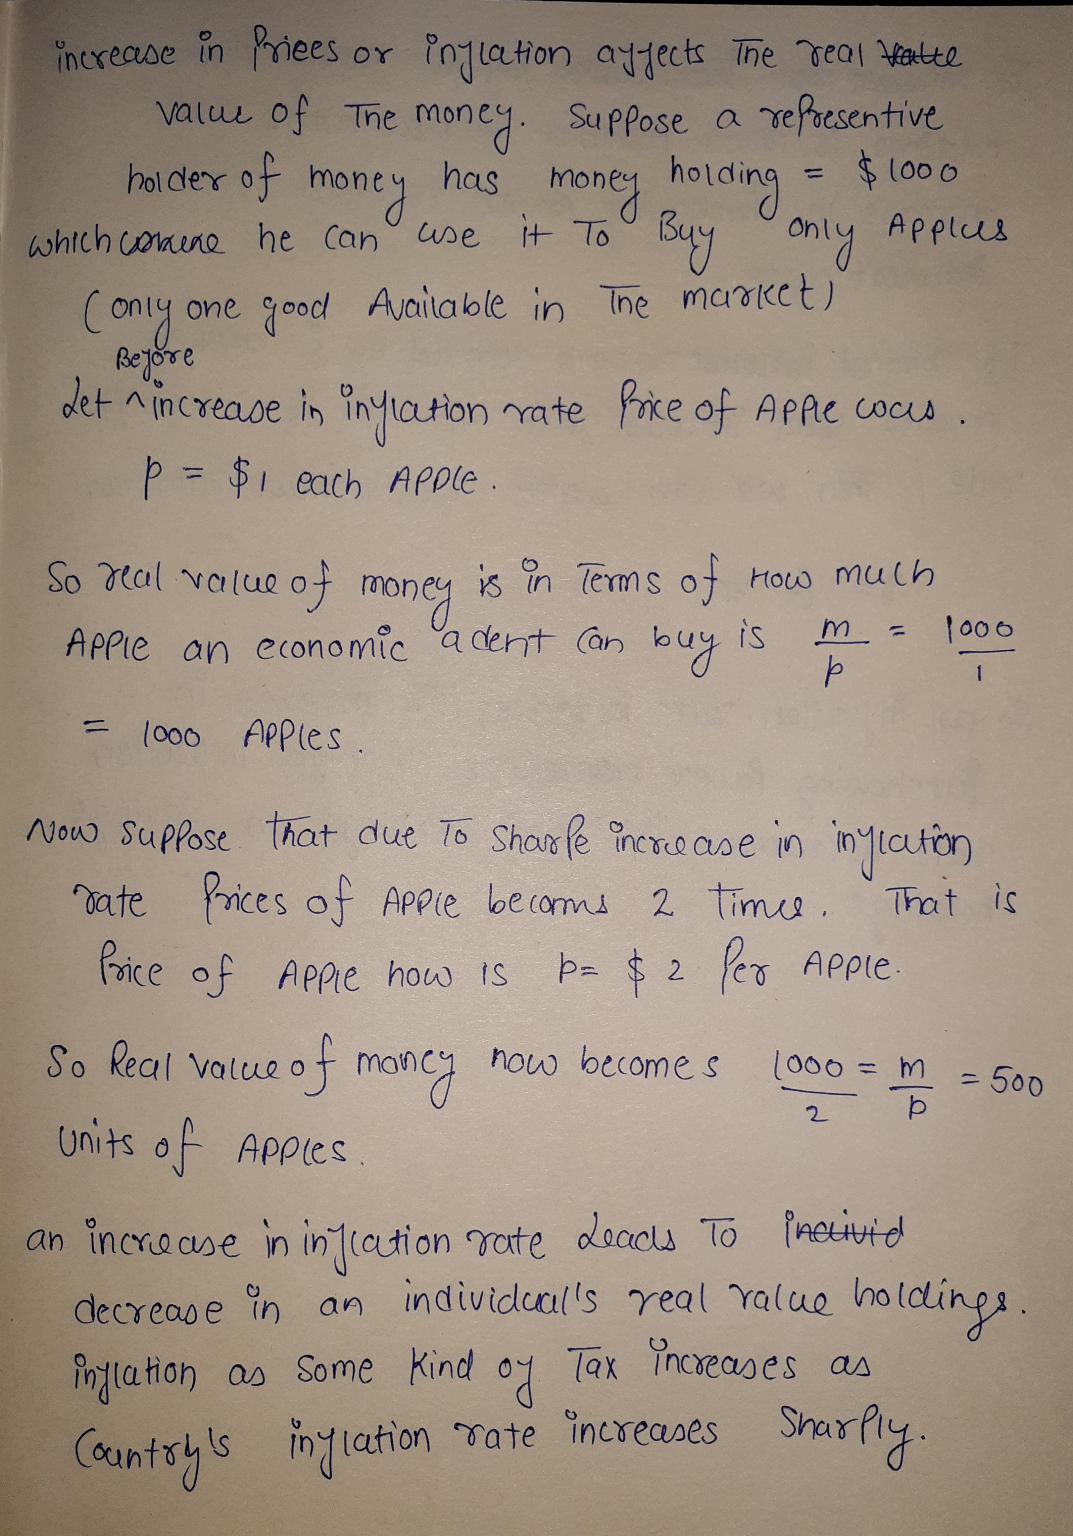 increase in Prices or inflation affects The real Value
value of The money. Suppose a representive
holder of money has money holding = $1000
which he can use it To Buy only Apples
(only one good Available in The market)
Before
Let ^ increase in inflation rate Price of Apple was .
p = $1 each Apple .
So real value of money is in Terms of How much
Apple an economic adent can buy is m/p = 1000/1
= 1000 Apples .
Now Suppose That due To Sharpe increase in inflation
rate Prices of Apple becoms 2 Times . That is
Price of Apple now is p= $2 Per Apple.
So Real value of money now becomes 1000/2 = m/p = 500
Units of Apples .
an increase in inflation rate Leads To individ
decrease in an individual's real value holdings.
inflation as Some Kind of Tax increases as
Country's inflation rate increases Sharply.